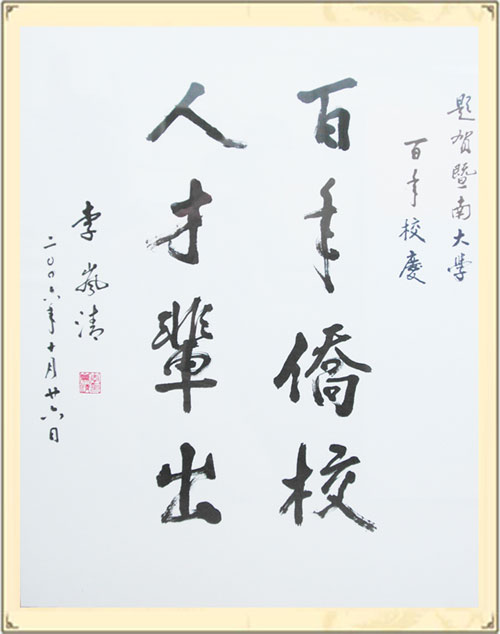 题贺暨南大学
百年校慶
百年僑校
人才輩出
李岚清
二〇〇六年十月廿六日